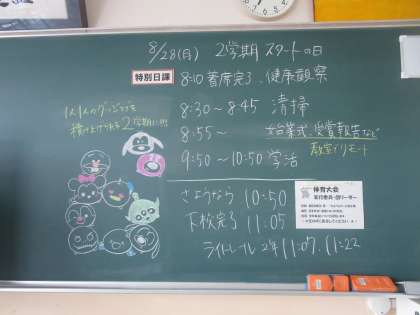 8/28(月) 2学期 スタートの日
特別日課
8:10 着席完了、健康観察
1人1人のグッジョブを
積み上げられる2学期に!!!
8:30〜8:45 清掃
8:55〜 始業式、受賞報告など
教室でリモート
9:50〜10:50 学活
さようなら 10:50
下校完了 11:05
ライトレール 2年 11:07, 11:22
体育大会